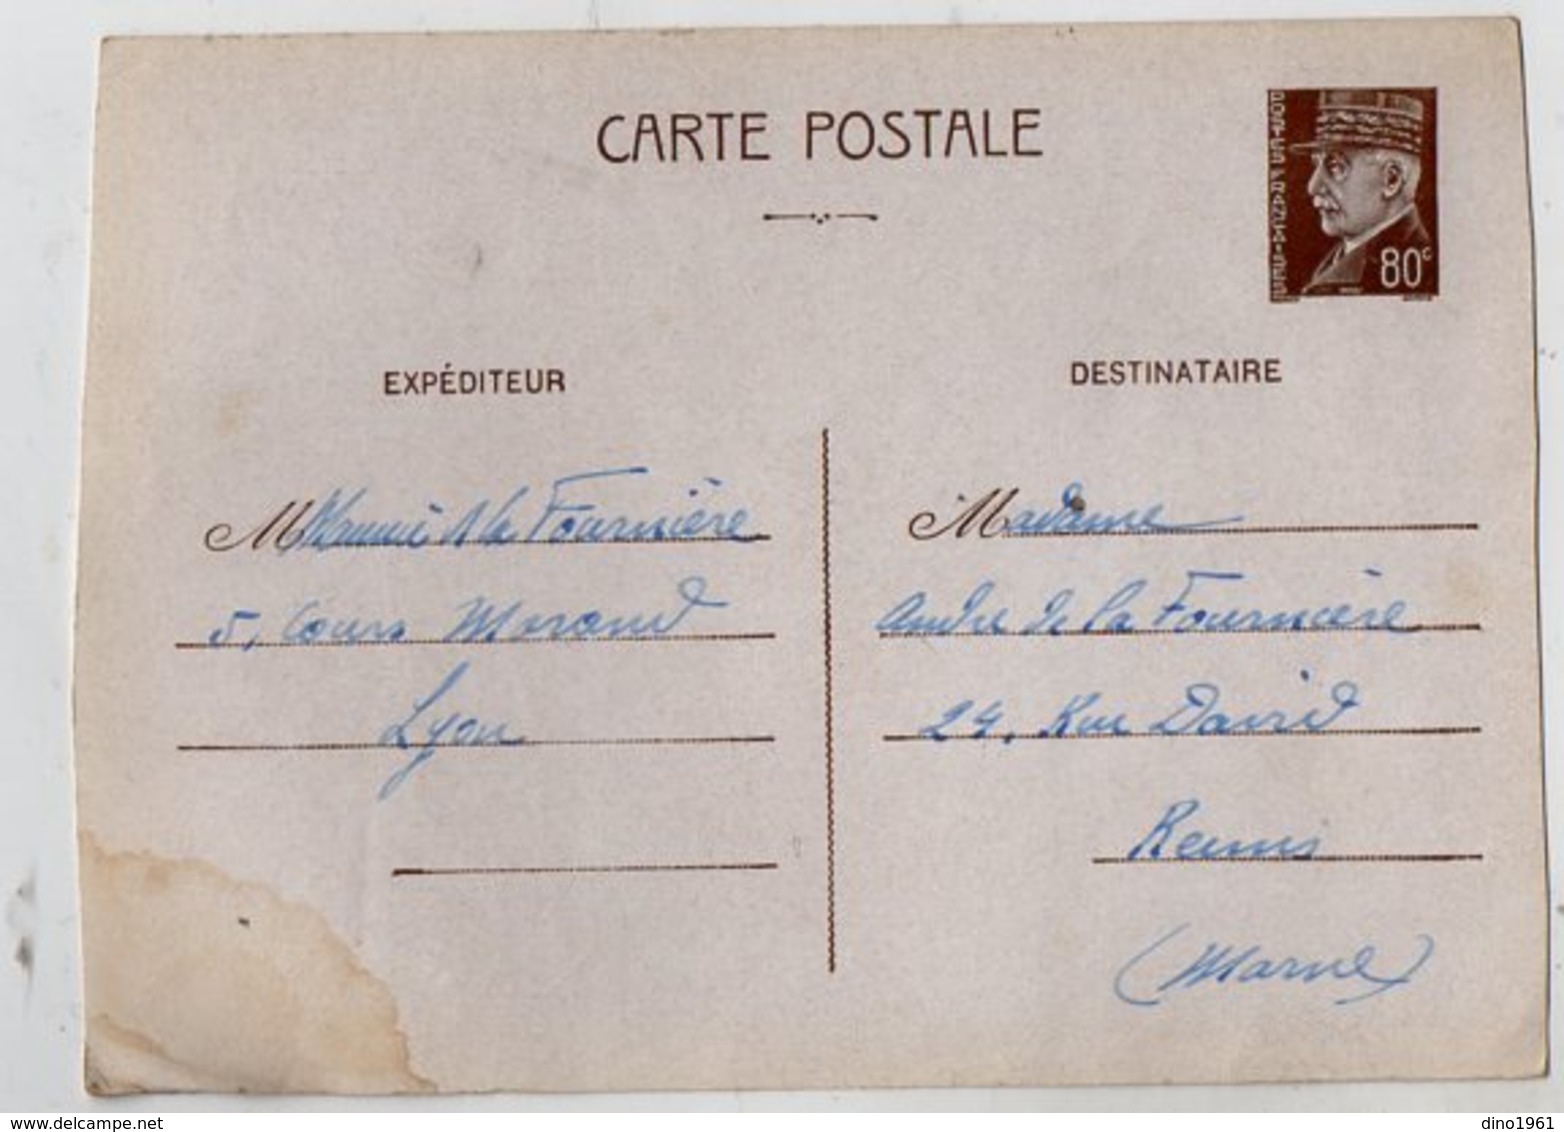 CARTE POSTALE
POSTES FRANÇAISES
80c
EXPÉDITEUR
DESTINATAIRE
M de la Fournière
5, Cours Morand
Lyon
Madame
André de la Fournière
24, Rue David
Reims
(Marne)
delcampe.net
dino1961